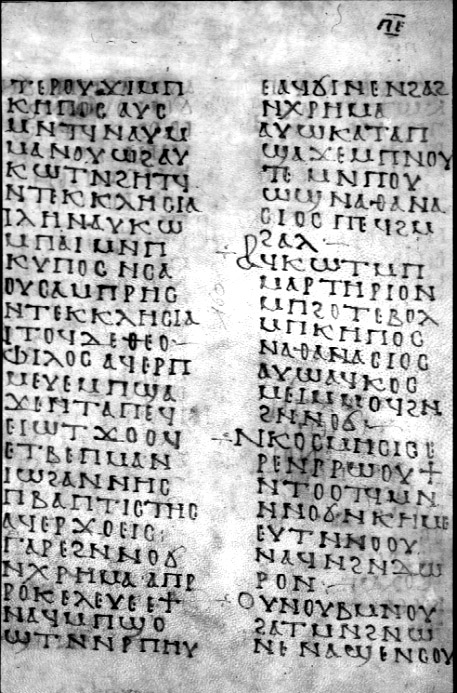 ⲠⲈ
ⲧⲉⲣⲟⲩϫⲓⲙⲡ
ⲕⲏⲡⲟⲥ ⲁⲩϭ
ⲙⲛⲧϥ ⲛⲁⲩⲙ
ⲙⲁⲛⲟⲩⲱϩ ⲁⲩ
ⲕⲱⲧ ⲛϩⲏⲧϥ
ⲛⲧⲉⲕⲕⲗⲏⲥⲓⲁ
ⲡⲗⲏⲛ ⲁⲩⲕⲱ
ⲙⲡⲁⲓ ⲙⲛⲡ
ⲕⲩⲡⲟⲥ ⲛⲥⲁ
ⲟⲩⲥⲁ ⲙⲡⲣⲏⲥ
ⲛⲧⲉⲕⲕⲗⲏⲥⲓⲁ
ⲓⲧⲟϥ ⲇⲉ ⲑⲉⲟ
ⲫⲓⲗⲟⲥ ⲁϥⲉⲣⲡ
ⲙⲉⲩⲉ ⲙⲡϣⲁ
ϫⲉ ⲛⲧⲁⲡⲉϥ
ⲉⲓⲱⲧ ϫⲟⲟϥ
ⲉⲧⲃⲉ ⲡⲙⲁⲛ
ⲓⲱϩⲁⲛⲛⲏⲥ
ⲡⲃⲁⲡⲧⲓⲥⲧⲏⲥ
ⲁϥⲉⲣϫⲟⲉⲓⲥ
ⲅⲁⲣ ⲉϩⲛⲛⲟϭ
ⲛⲭⲣⲏⲙⲁ ⲁⲡⲣ
ⲣⲟ ⲕⲉⲗⲉⲩⲉ ⲉϯ
ⲛⲁϥ ⲙⲡϣⲟ
ϣⲧ ⲛⲛⲣⲡⲏⲩ
ⲉⲁϥϭⲓⲛⲉ ⲛϩⲁϩ
ⲛⲭⲣⲏⲙⲁ
ⲁⲩⲱ ⲕⲁⲧⲁ ⲡ
ϣⲁϫⲉ ⲙⲡⲛⲟⲩ
ⲧⲉ ⲙⲛ ⲡⲟⲩ
ⲱϣ ⲛⲁⲑⲁⲛⲁ
ⲥⲓⲟⲥ ⲡⲉϥϩⲙ
ϩⲁⲗ
ⲁϥⲕⲱⲧ ⲙⲡ
ⲙⲁⲣⲧⲏⲣⲓⲟⲛ
ⲙⲡϩⲟ ⲧⲉⲃⲟⲗ
ⲙⲡⲕⲏⲡⲟⲥ
ⲛⲁⲑⲁⲛⲁⲥⲓⲟⲥ
ⲁⲩⲱ ⲁϥⲕⲟⲥ
ⲙⲉⲓ ⲙⲙⲟϥ ϩⲛ
ϩⲛⲛⲟϭ
ⲛⲕⲟⲥⲙⲏⲥⲓⲥ ⲉ
ⲣⲉ ⲛⲣⲣⲱⲟⲩ ϯ
ⲛⲧⲟⲟⲧϥ ⲙⲛ
ⲛⲛⲟϭ ⲛⲕⲏⲙⲉ
ⲉⲩⲧⲛⲛⲟⲟⲩ
ⲛⲁϥ ⲛϩⲛⲇⲱ
ⲣⲟⲛ
ⲟⲩⲛⲟⲩⲃ ⲙⲛⲟⲩ
ϩⲁⲧ ⲙⲛϩⲛⲱ
ⲛⲉ ⲛⲁϣⲉⲛⲥⲟⲩ